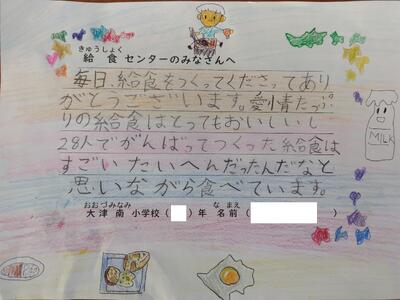 きゅうしょく
給食センターのみなさんへ
毎日、給食をつくってくださってあり
がとうございます。愛情たっぷ
りの給食はとってもおいしいし
28人でがんばってつくった給食は
すごいたいへんだったんだなと
思いながら食べています。
おおづみなみ なまえ
大津南小学校( )年 名前( )
MILK